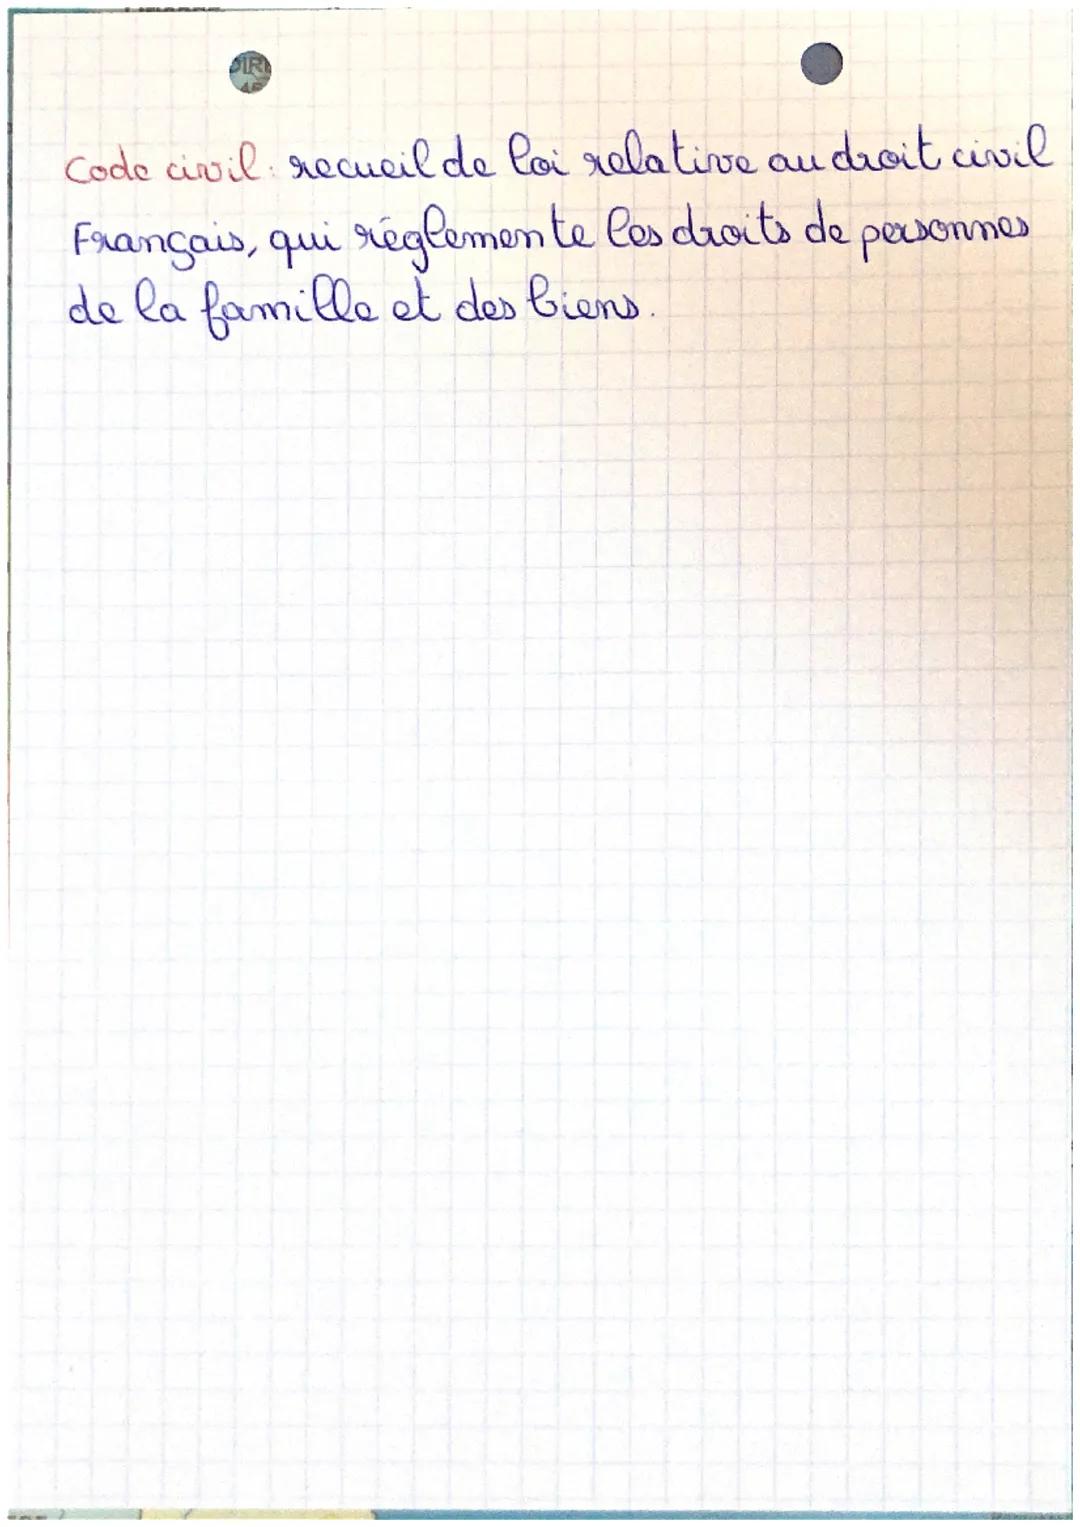 Code civil: recueil de loi relative au droit civil
Français, qui réglemente les droits de personnes
de la famille et des biens.